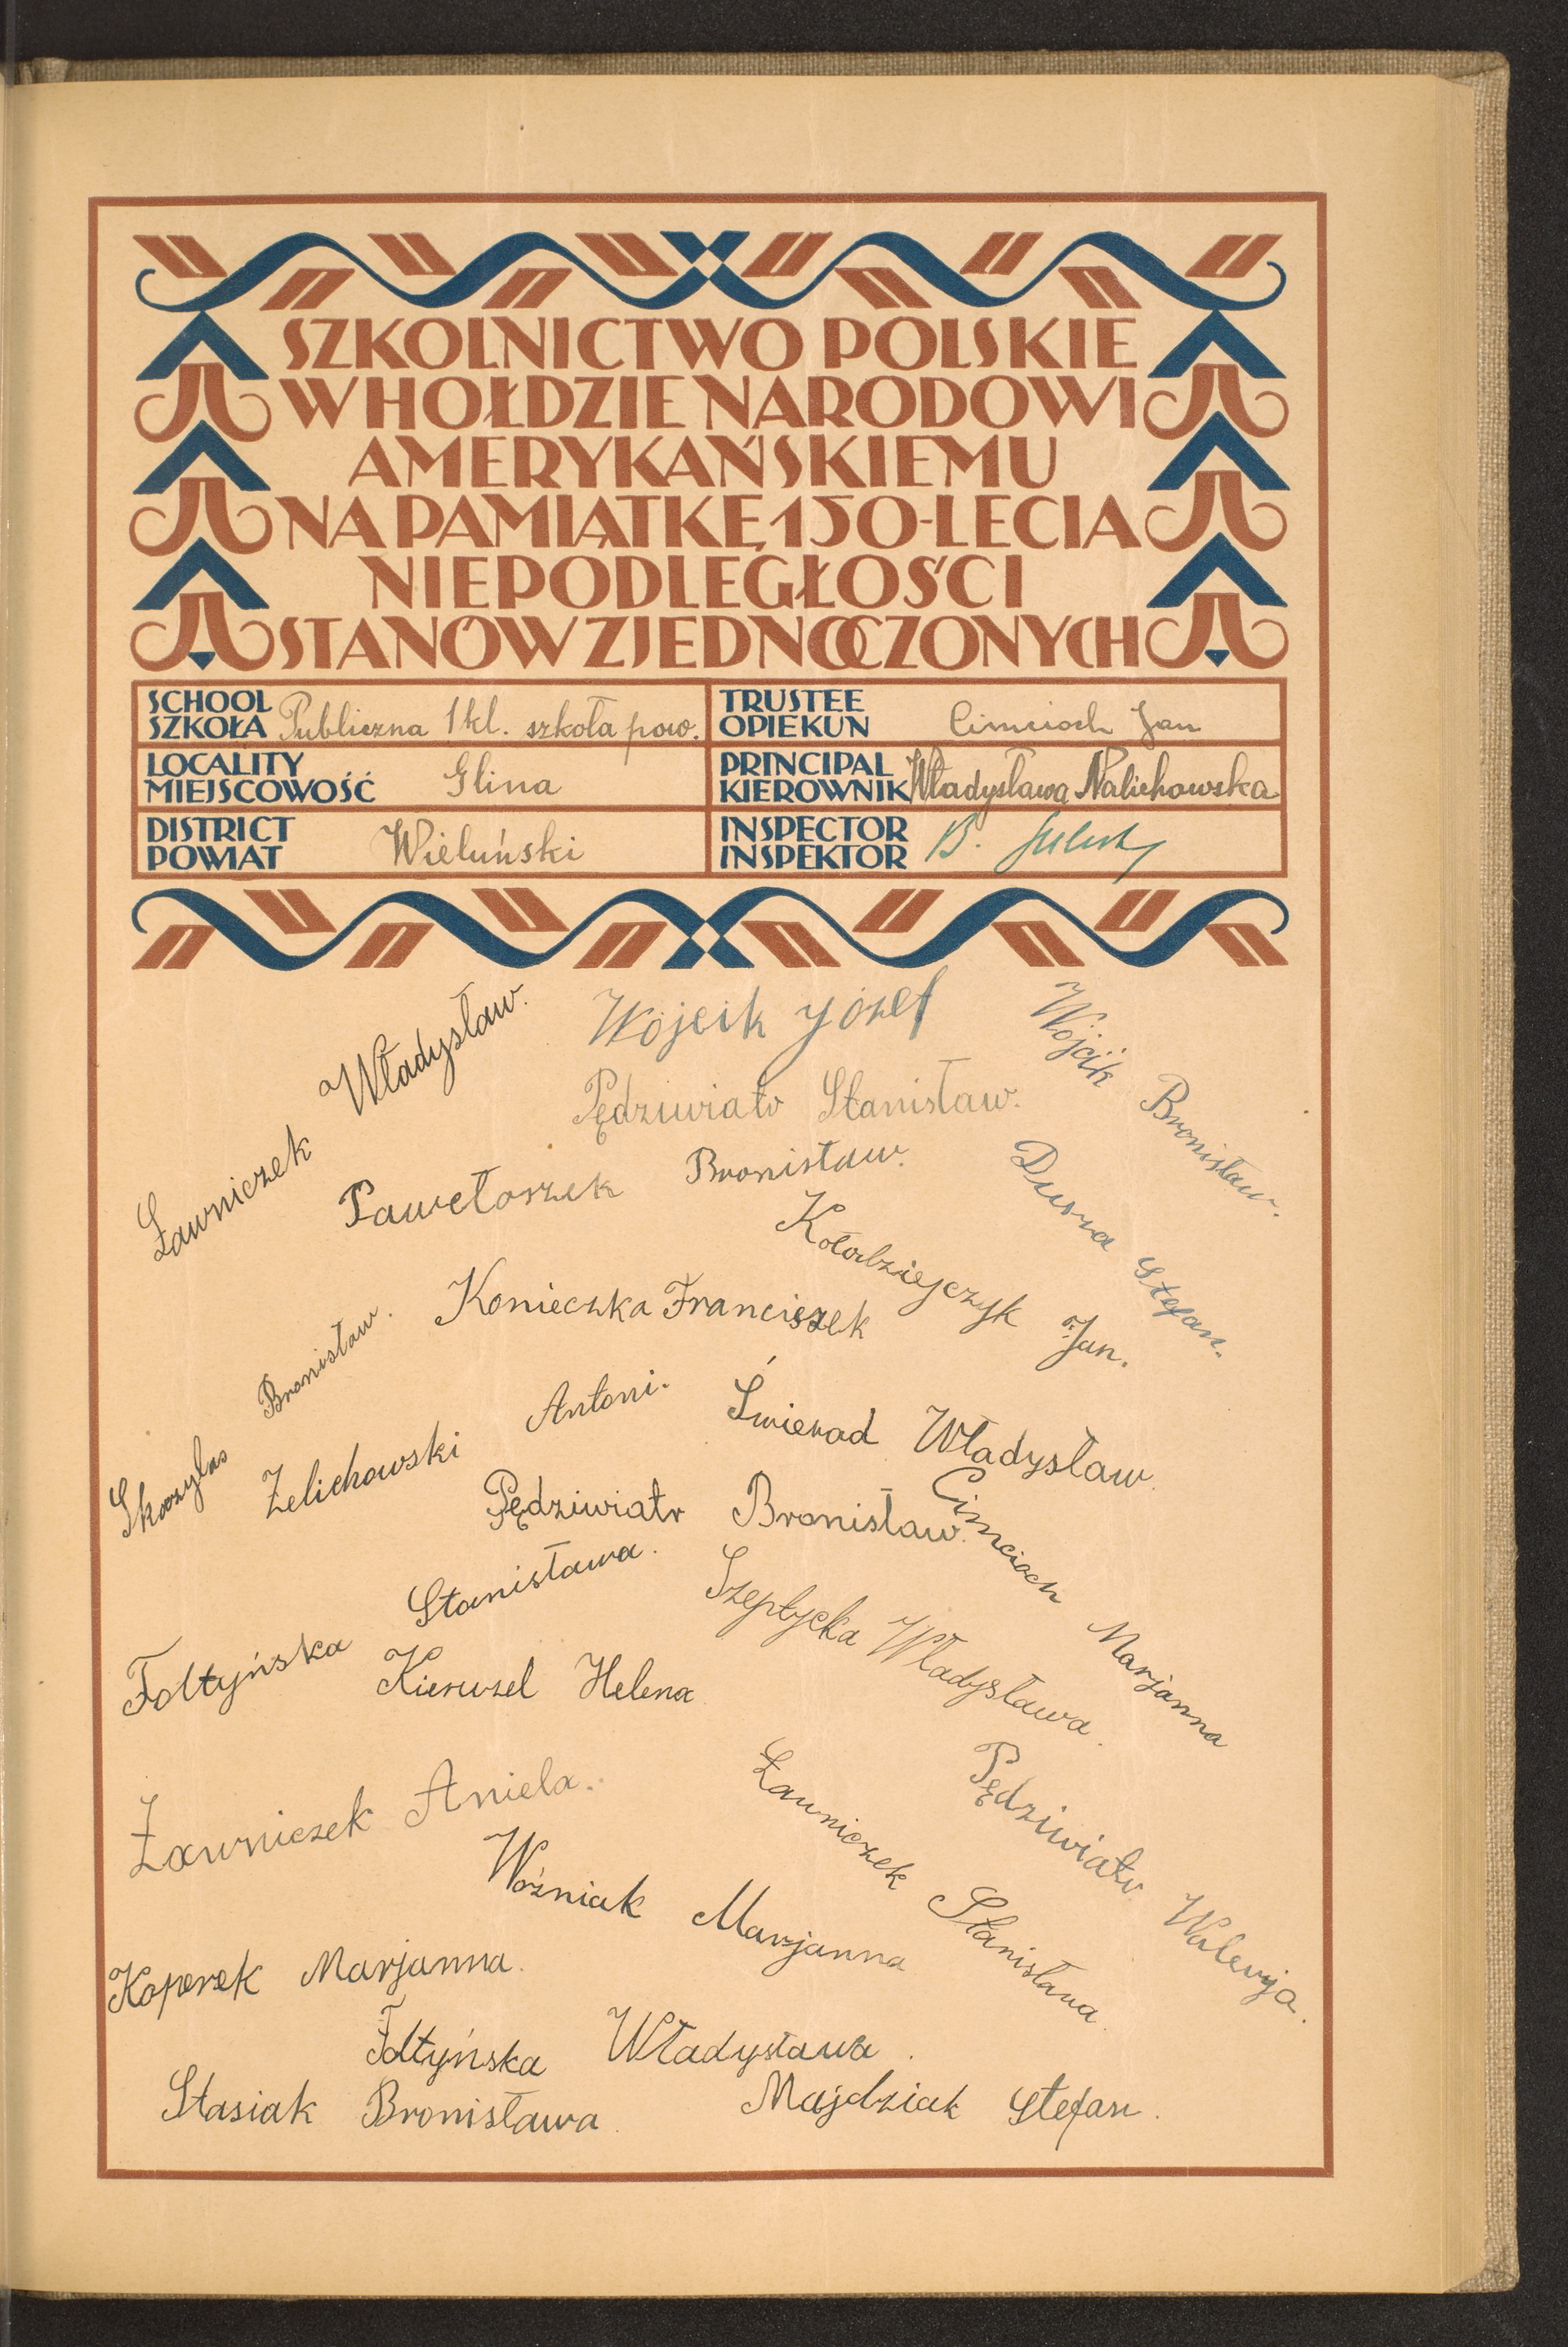 SZKOLNICTWO POLSKIE
W HOŁDZIE NARODOWI
AMERYKAŃSKIEMU
NA PAMIĄTKĘ 150-LECIA
NIEPODLEGŁOŚCI
STANÓW ZJEDNOCZONYCH
SCHOOL
SZKOŁA Publiczna 1 kl. szkoła pow.
TRUSTEE
OPIEKUN Cimcioch Jan
LOCALITY
MIEJSCOWOŚĆ Glina
PRINCIPAL
KIEROWNIK Władysława Nalichowska
DISTRICT
POWIAT Wieluński
INSPECTOR
INSPEKTOR B.
Ławniczek Władysław.
Wójcik Józef
Wójcik Bronisław.
Pędziwiatr Stanisław.
Pawełoszek Bronisław.
Dusza Stefan.
Kołodziejczyk Jan.
Konieczka Franciszek
Skoczylas Bronisław.
Żelichowski Antoni.
Świerad Władysław.
Pędziwiatr Bronisław.
Cimcioch Marjanna
Fołtyńska Stanisława.
Szeptycka Władysława.
Kierwzel Helena
Ławniczek Aniela.
Ławniczek Stanisława
Pędziwiatr Walerja.
Woźniak Marjanna
Koperek Marjanna.
Fołtyńska Władysława.
Stasiak Bronisława.
Majdziak Stefan.